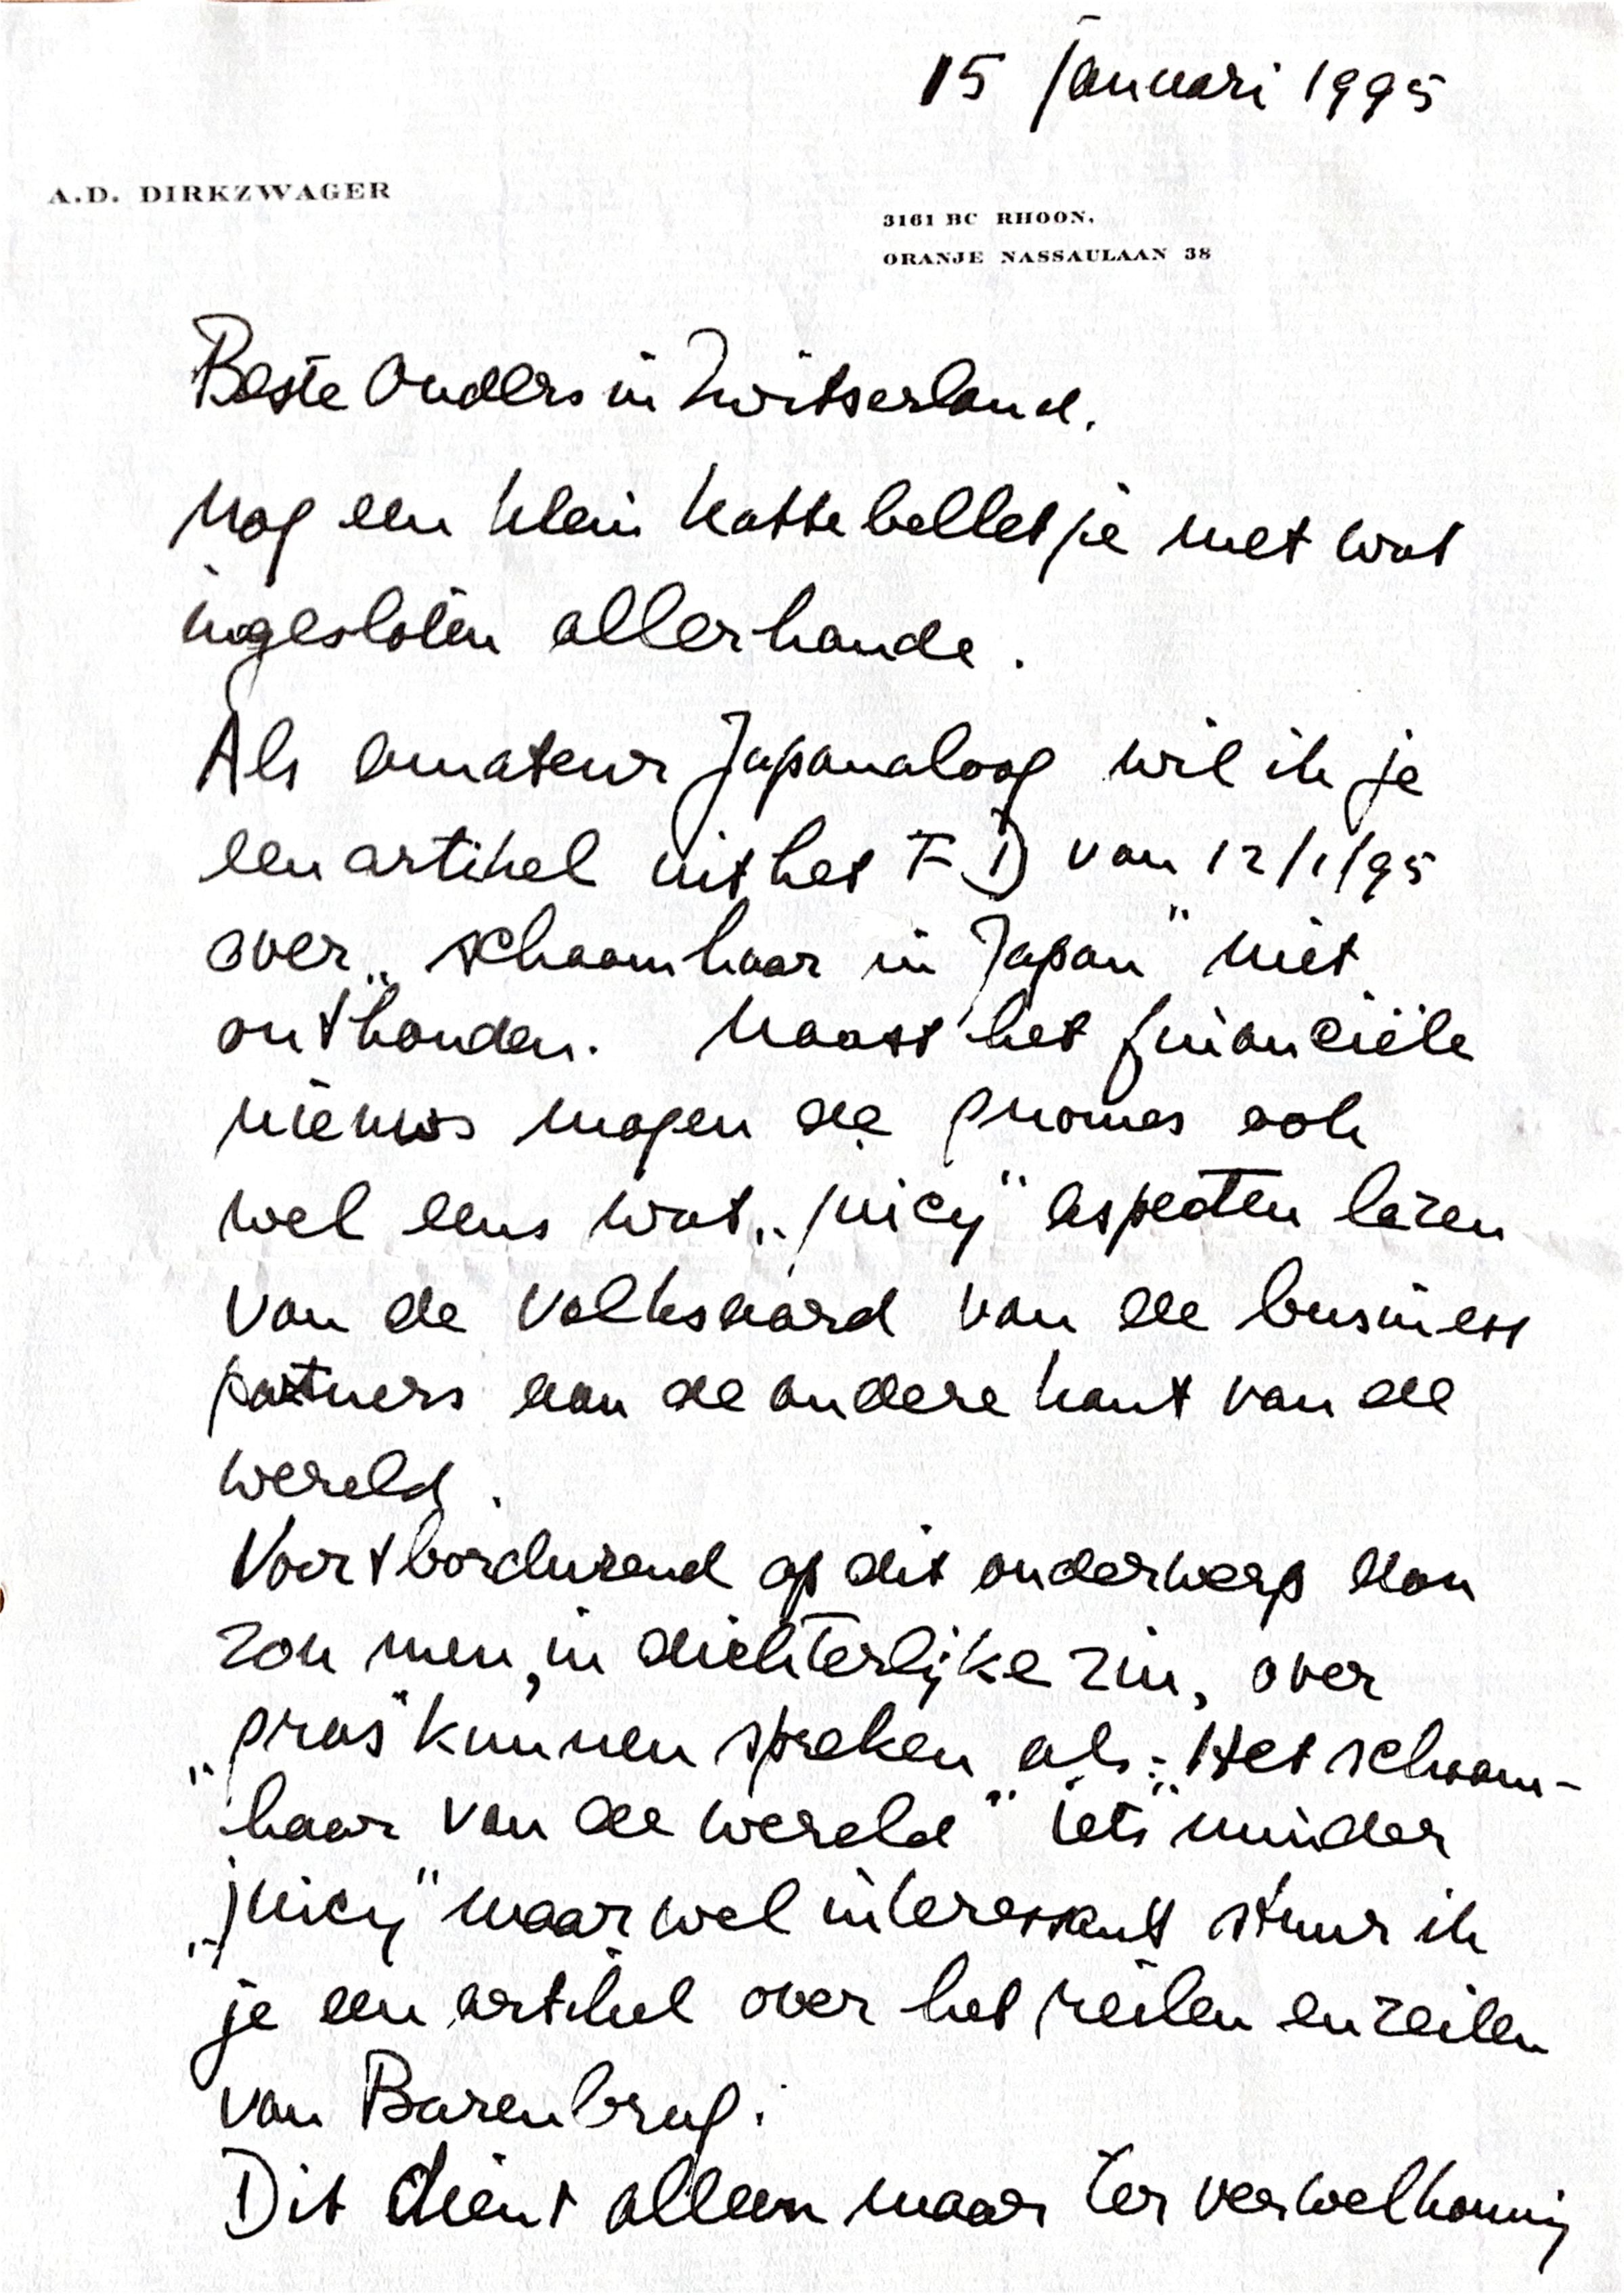 15 januari 1995
A.D. DIRKZWAGER
3161 BC RHOON,
ORANJE NASSAULAAN 38
Beste Ouders in Zwitserland,
Nog een klein kattebelletje met wat
ingesloten allerhande.
Als amateur Japanaloog wil ik je
een artikel uit het FD van 12/1/95
over „schaamhaar in Japan" niet
onthouden. Naast het financiële
nieuws mogen de gnomes ook
wel eens wat „juicy" aspecten lezen
van de volksaard van de business
partners aan de andere kant van de
wereld.
Voortbordurend op dit onderwerp dan
zou men, in dichterlijke zin, over
„gras" kunnen spreken als: „Het schaam-
haar van de wereld" iets minder
„juicy" maar wel interessant stuur ik
je een artikel over het reilen en zeilen
van Barenbrug.
Dit dient alleen maar ter verwelkoming